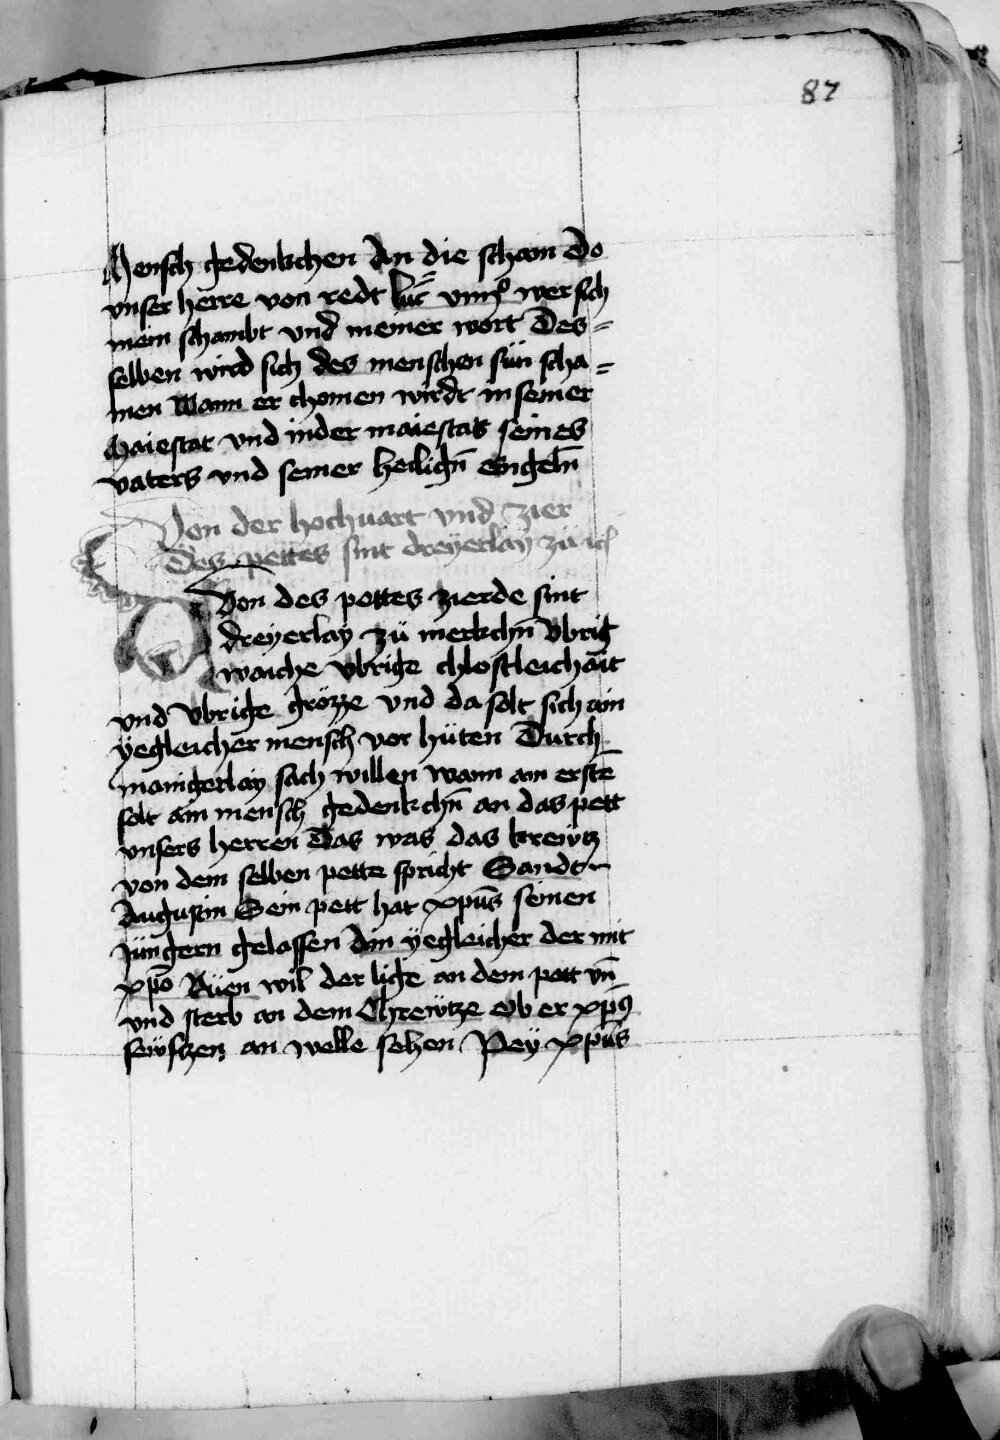 87
Mensch gedenkchen An die scham Do
vnser herre von redt luc̄ viiii° wer sich
mein schambt vnd meiner wort Des=
selben wird sich des menschen sün scha=
men Wann er chomen wirdt in seiner
Maiestat vnd in der maiestats seines
vaters vnd seiner heilign̄ engeln̄
Von der hochuart vnd zier
Des pettes sint dreyerlay zü
Von des pettes zierde sint
dreyerlay zü merkchn̄ Vbrig
waiche vbrige chlostleichait
vnd Vbrige grözze vnd da solt sich ain
yegleicher mensch vor hüten Durch
manigerlay sach willen wann am erstē
solt ain mensch gedenkchn̄ an das pett
vnsers herren Das was das krewtz
von dem selben pette spricht Sandt
Augustin Sein pett hat xpūs seinen
Jüngern gelassen Ain yegleicher der mit
xpō Rüen wil der lige an dem pett vn̄
vnd sterb an dem Chrewtze Ob er xpm̄
sewfczen an welle sehen Pey xpūs